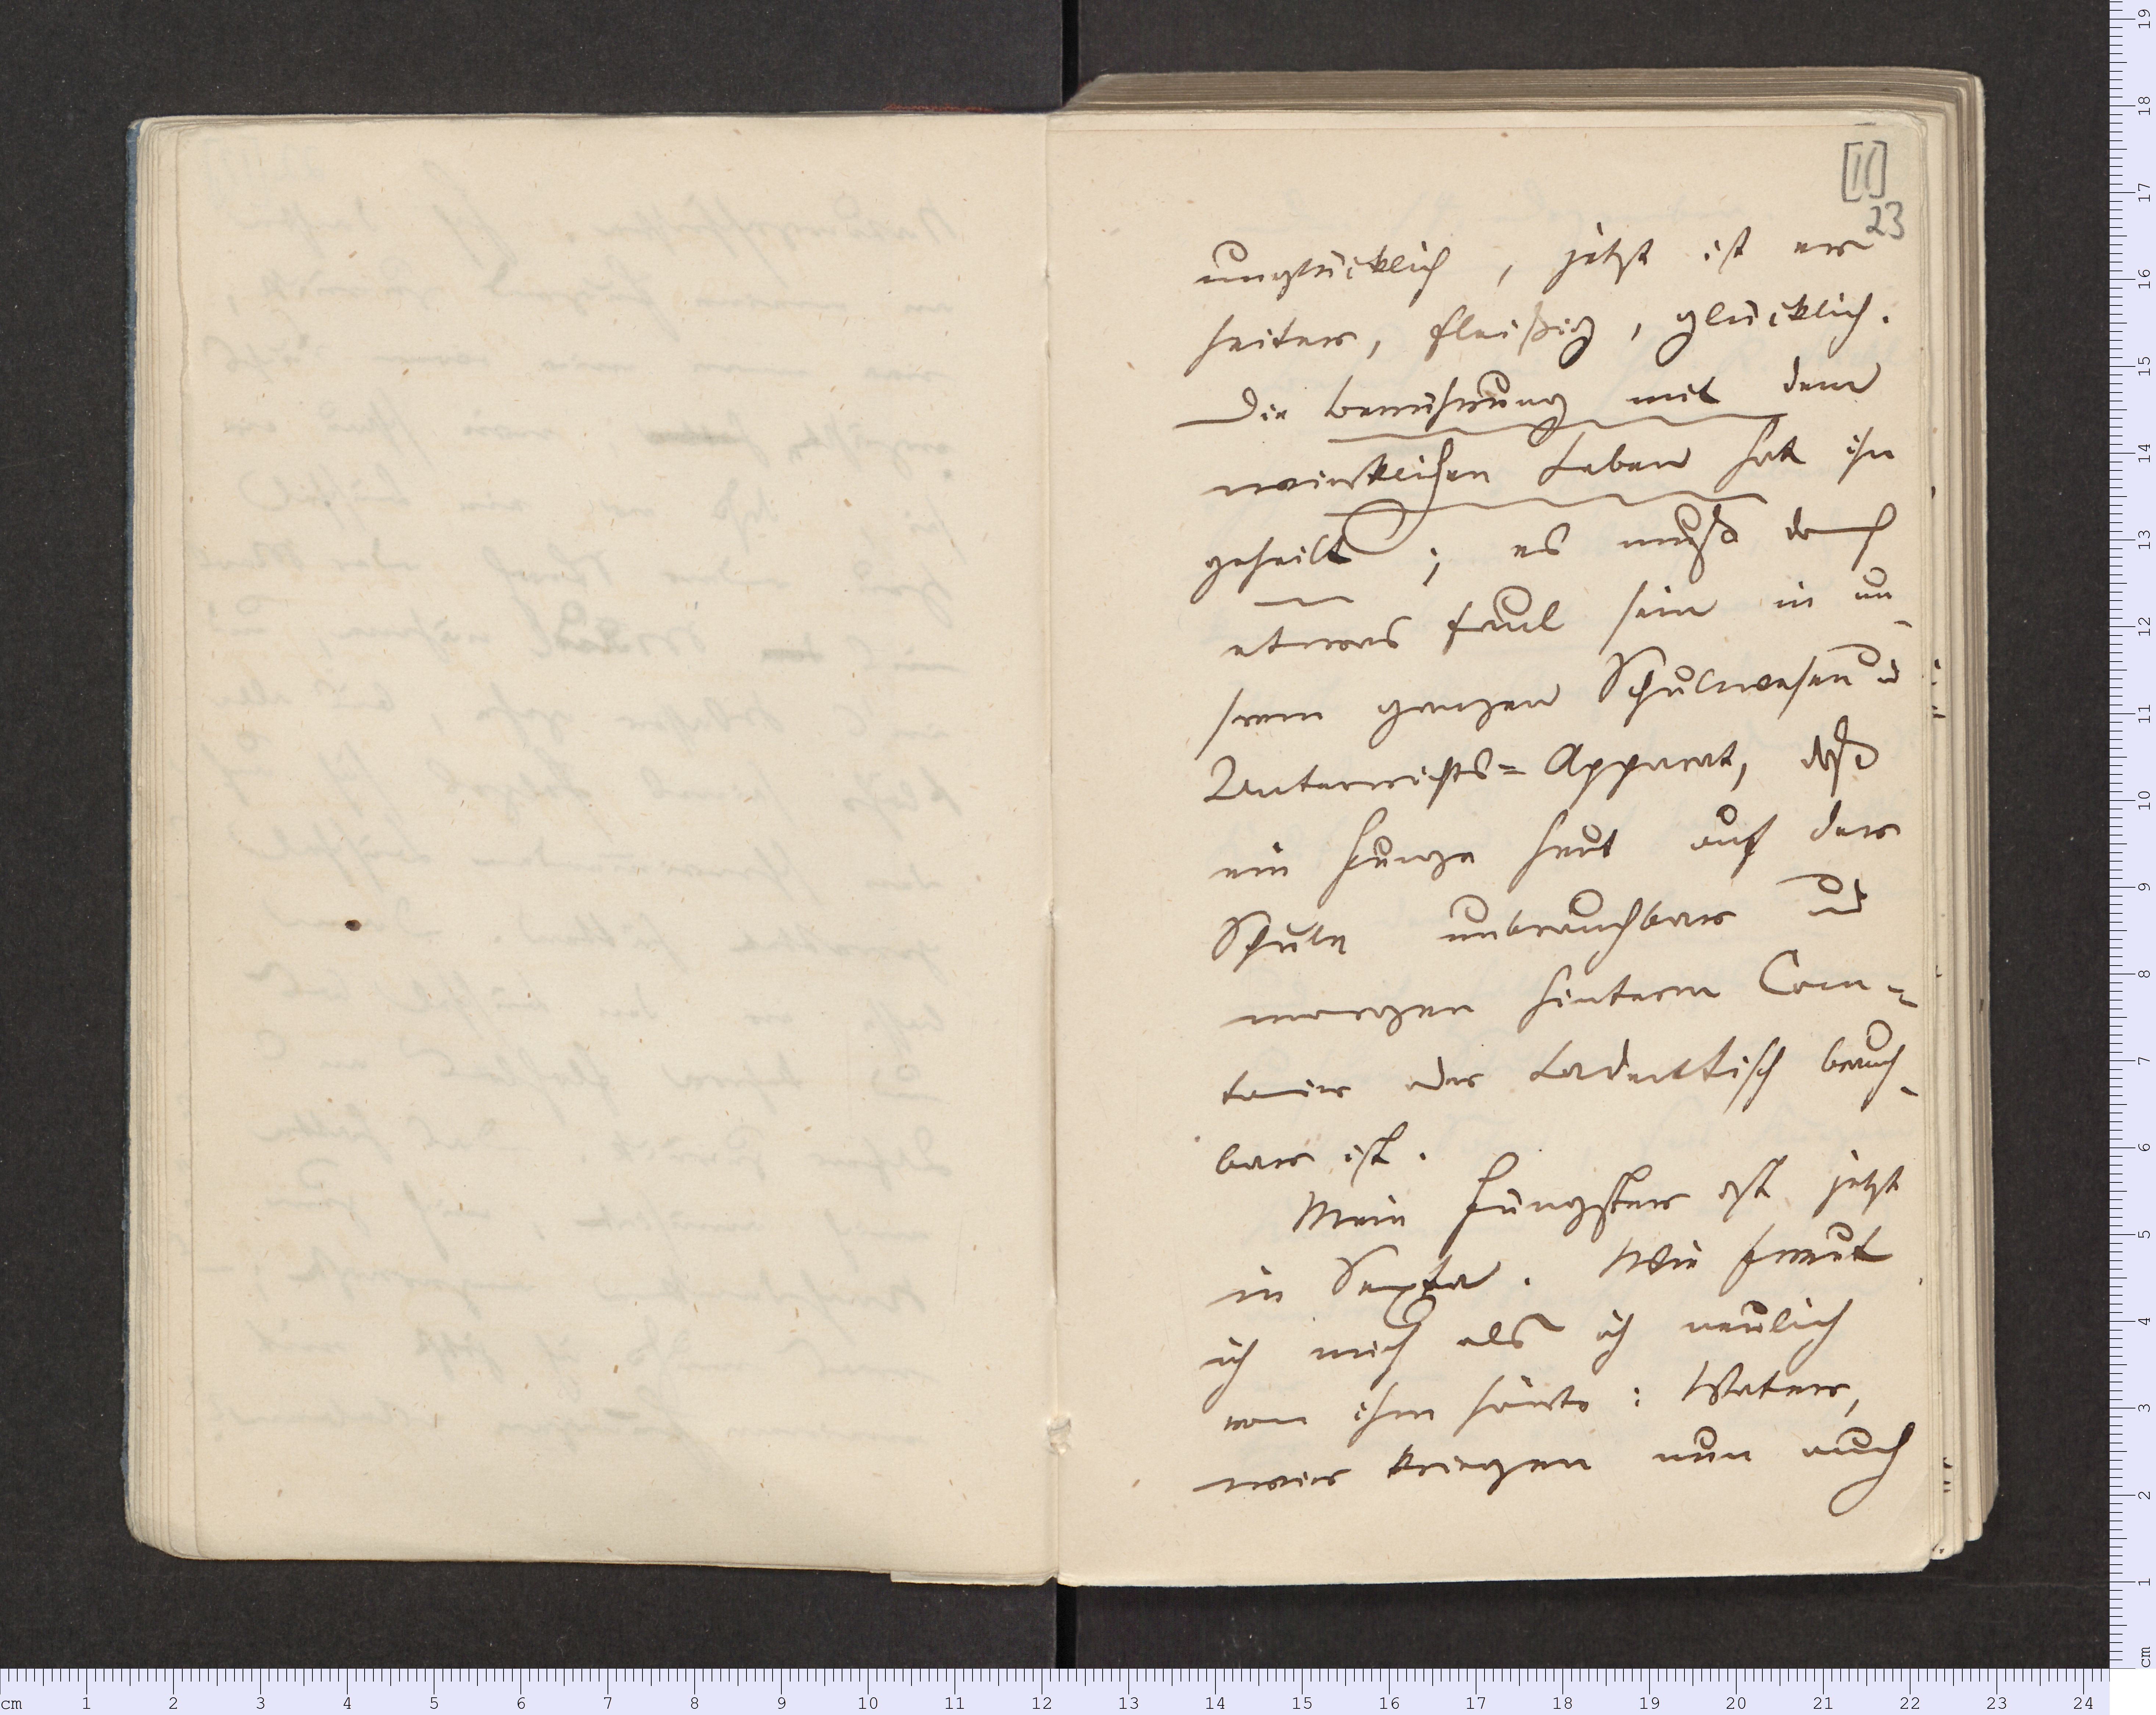 [11]
23
unglücklich, jetzt ist er
heiter, fleißig, glücklich.
Die Berührung mit dem
wirklichen Leben hat ihn
geheilt; es muß doch
etwas faul sein in un-
srem ganzen Schulwesen u
Unterrichts=Apparat, daß
ein Junge heut auf der
Schule unbrauchbar und
morgen hinterm Com=
toir oder Ladentisch brauch-
bar ist.
Mein Jüngster ist jetzt
in Sexta. Wie freut
ich mich als ich neulich
von ihm hörte: Vater,
wir kriegen nun auch